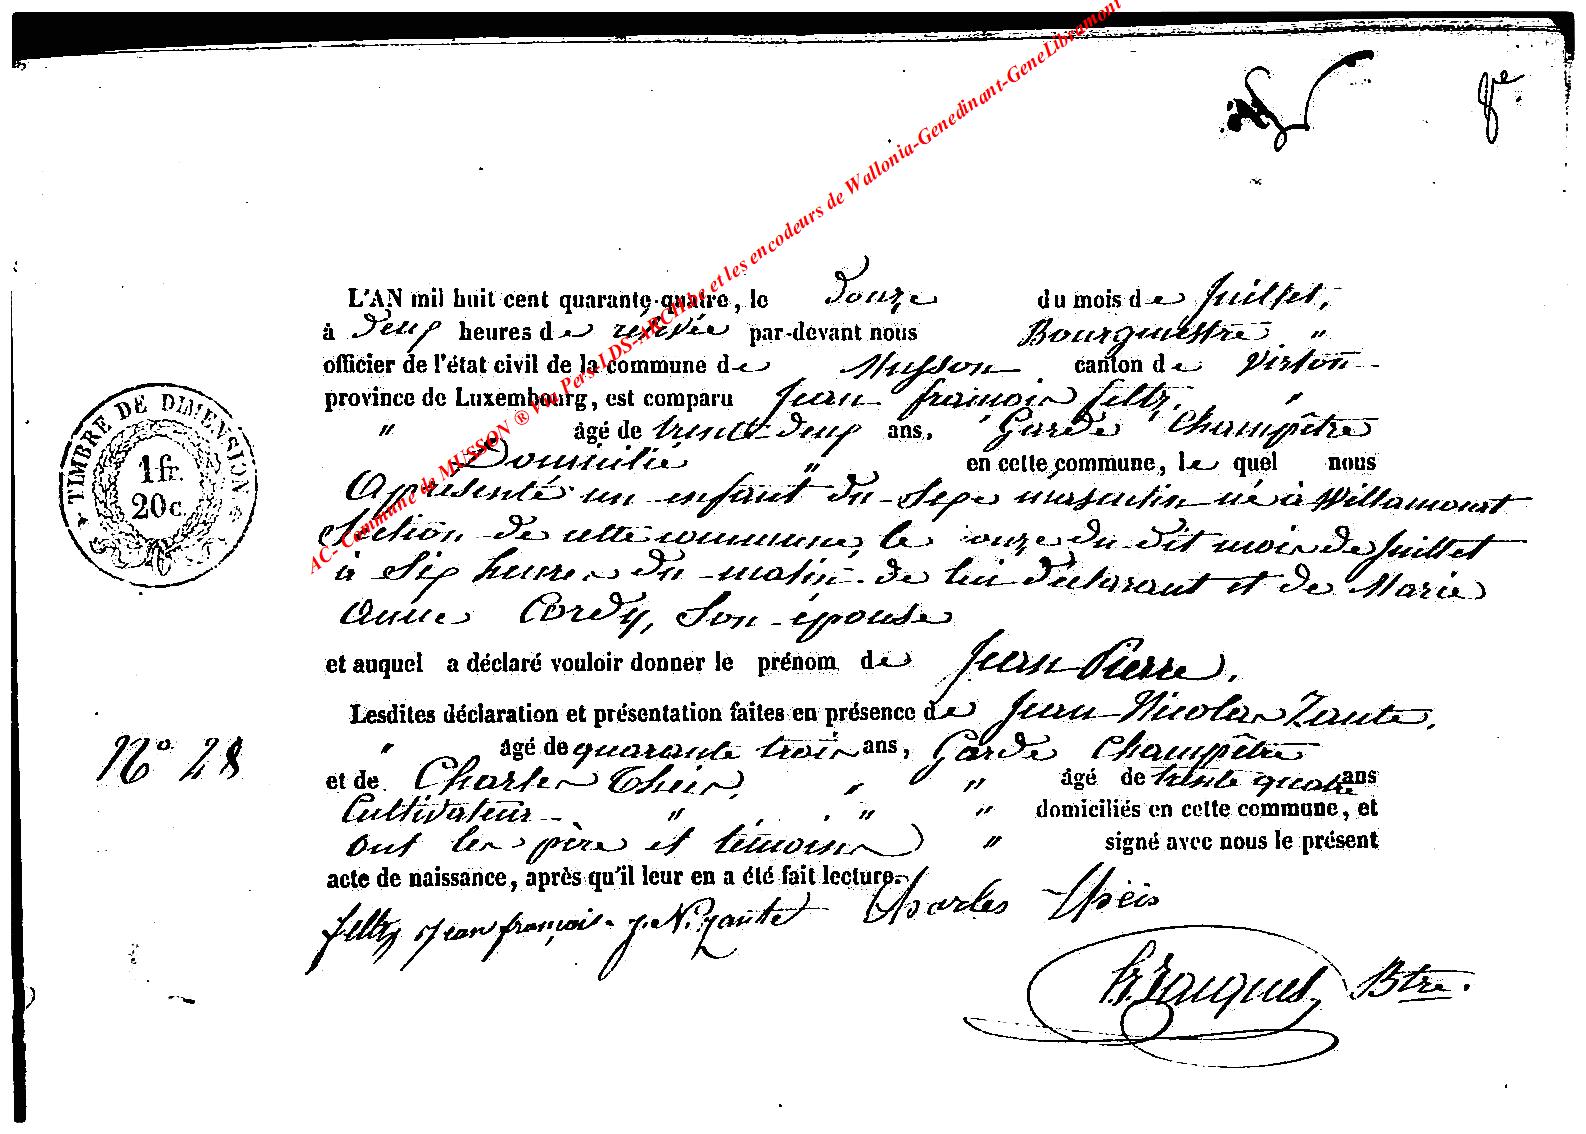 8e.
AC- Commune de MUSSON ® Via Pers-LDS-ARCH.be et les encodeurs de Wallonia-Genedinant-GeneLibramont
L'AN mil huit cent quarante-quatre, le Douze du mois de Juillet,
à Deux heures de relevée par-devant nous Bourgmestre "
officier de l'état civil de la commune de Musson canton de Virton
province de Luxembourg, est comparu Jean françois feltz, "
" âgé de trente deux ans, Garde Champêtre
Domicilié " en cette commune, le quel nous
A présenté un enfant du Sexe masculin né à Willancourt
Section de cette commune, le onze du dit mois de Juillet
à Six heures du matin de lui déclarant et de Marie
Anne Cordy, Son épouse
et auquel a déclaré vouloir donner le prénom de Jean Pierre.
Lesdites déclaration et présentation faites en présence de Jean Nicolas Zante,
" âgé de quarante trois ans, Garde Champêtre
et de Charles Theis, " " âgé de trente quatre ans
Cultivateur " " " domiciliés en cette commune, et
ont les père et témoins " signé avec nous le présent
acte de naissance, après qu'il leur en a été fait lecture.
feltz jean françois J. N. Zante Charles Theis
Jacques, Btre.
TIMBRE DE DIMENSION
1 fr.
20 c.
No 28